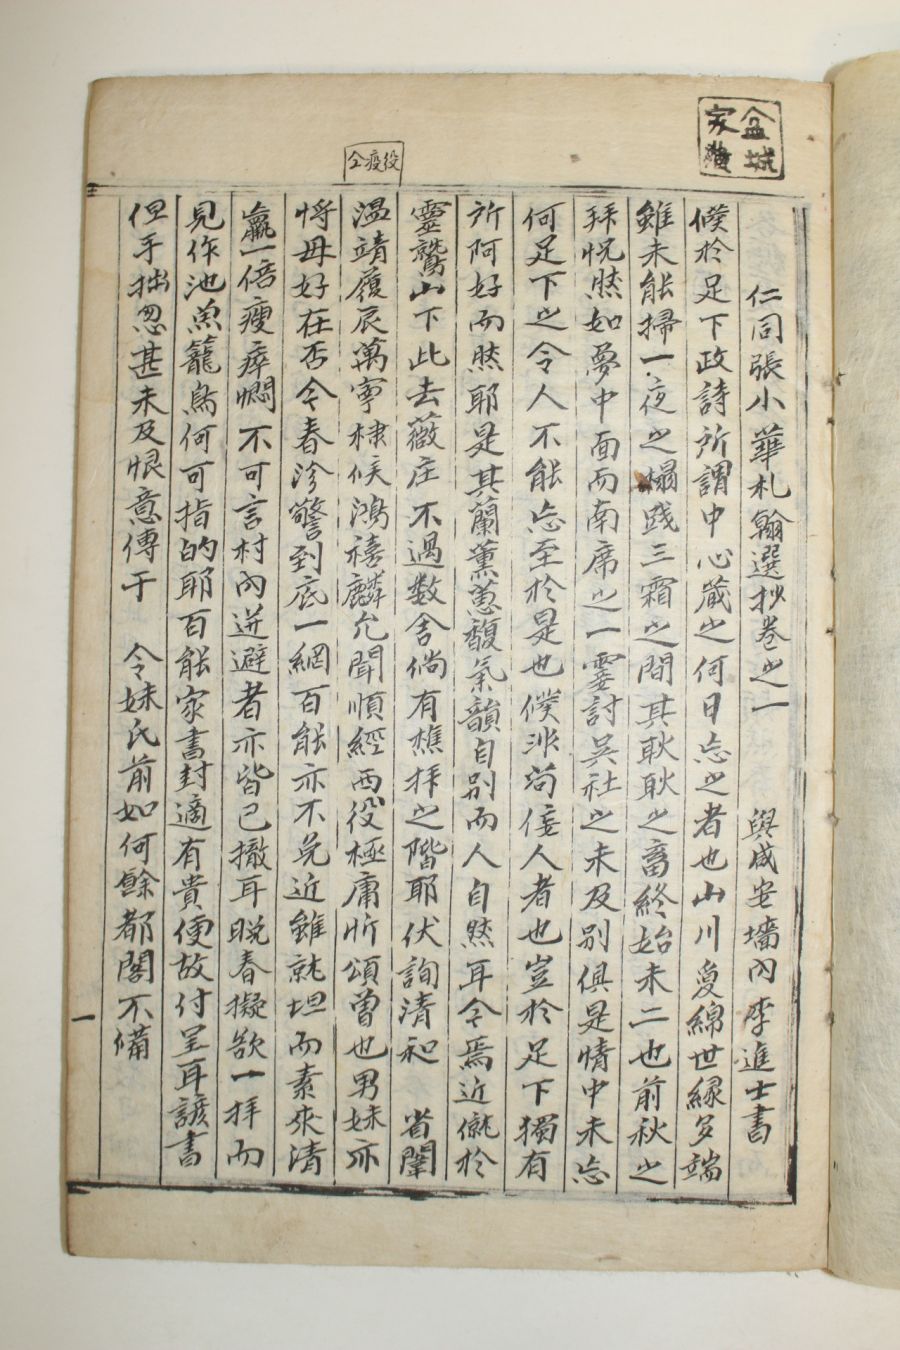 盆城
家藏
仝疫役
仁同張小華札翰選抄卷之一 與咸安墻內李進士書
僕於足下政詩所謂中心藏之何日忘之者也山川夐綿世緣多端
雖未能掃一夜之榻踐三霜之間其耿耿之畜終始未二也前秋之
拜怳然如夢中面而南席之一霎討吳社之未及別俱是情中未忘
何足下之令人不能忘至於是也僕非苟侫人者也豈於足下獨有
所阿好而然耶是其蘭薰蕙馥氣韻自別而人自然耳今焉近僦於
靈鷲山下此去薇庄不過數舍倘有樵拜之階耶伏詢清和 省闈
溫靖履辰萬寧棣候鴻禧麟允聞順經西役極庸忻頌曾也男妹亦
將毋好在否今春沴警到底一網百能亦不免近雖就坦而素來清
羸一倍瘦瘁憫不可言村內迸避者亦皆已撤耳晩春擬欲一拜而
見作池魚籠鳥何可指的耶百能家書封適有貴便故付呈耳諺書
但手拙忽甚未及恨意傳于 令妹氏前如何餘都閣不備
一